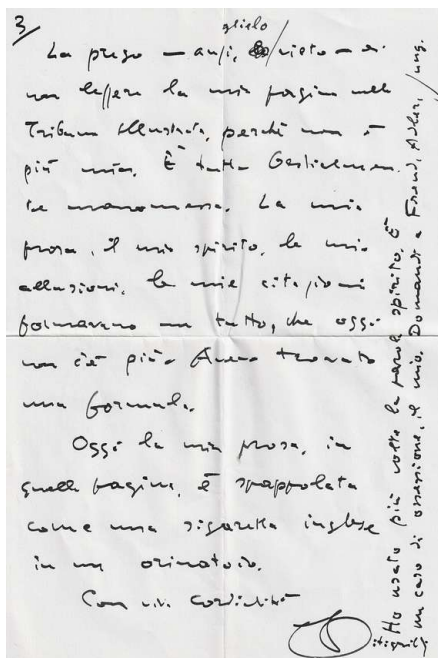 3/
glielo
La prego — anzi, vieto — di
non leggere la mia pagina nella
Tribuna Illustrata, perché non è
più mia. È tutta bestialmen
te manomessa. La mia
prosa, il mio spirito, le mie
allusioni, le mie citazioni
formavano un tutto, che oggi
non c'è più. Avevo trovato
una formula.
Oggi la mia prosa, in
quelle pagine, è spappolata
come una sigaretta inglese
in un orinatoio.
Con viva cordialità
Pitigrilli
Ho usato più volte la parola spirito. È
un caso di ossessione, il mio. Domandi a Freud, Adler, Jung.